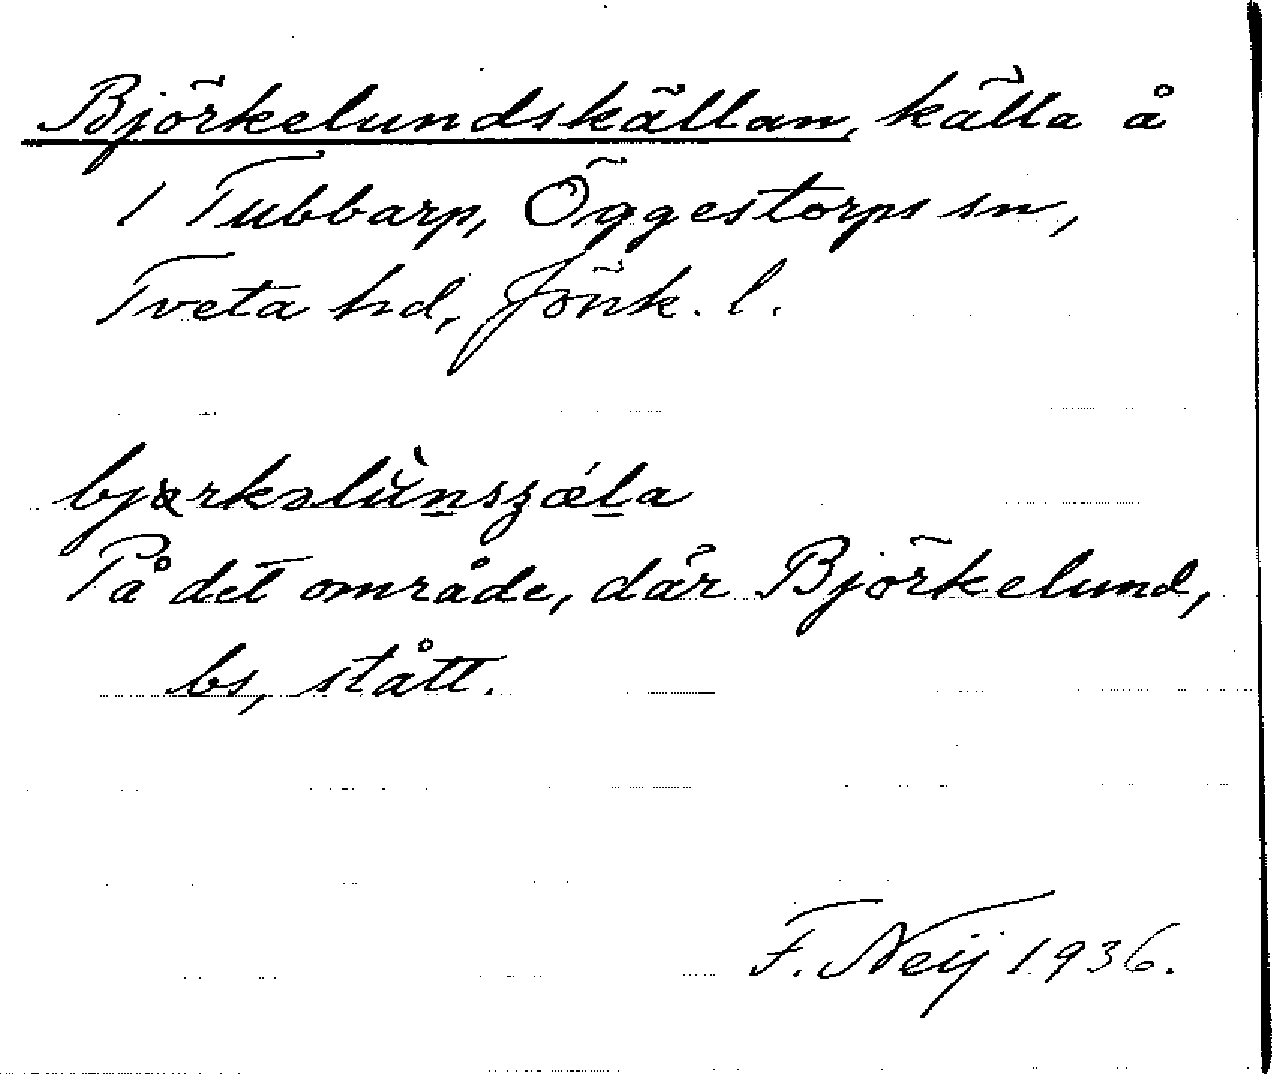 Björkelundskällan, källa å
1 Tubbarp, Öggestorps sn,
Tveta hd, Jönk. l.
På det område, där Björkelund,
bs, stått.
F. Neij 1936.